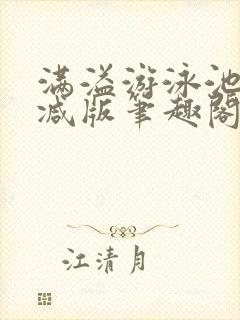 满溢游泳池
减版笔趣阁
江清月